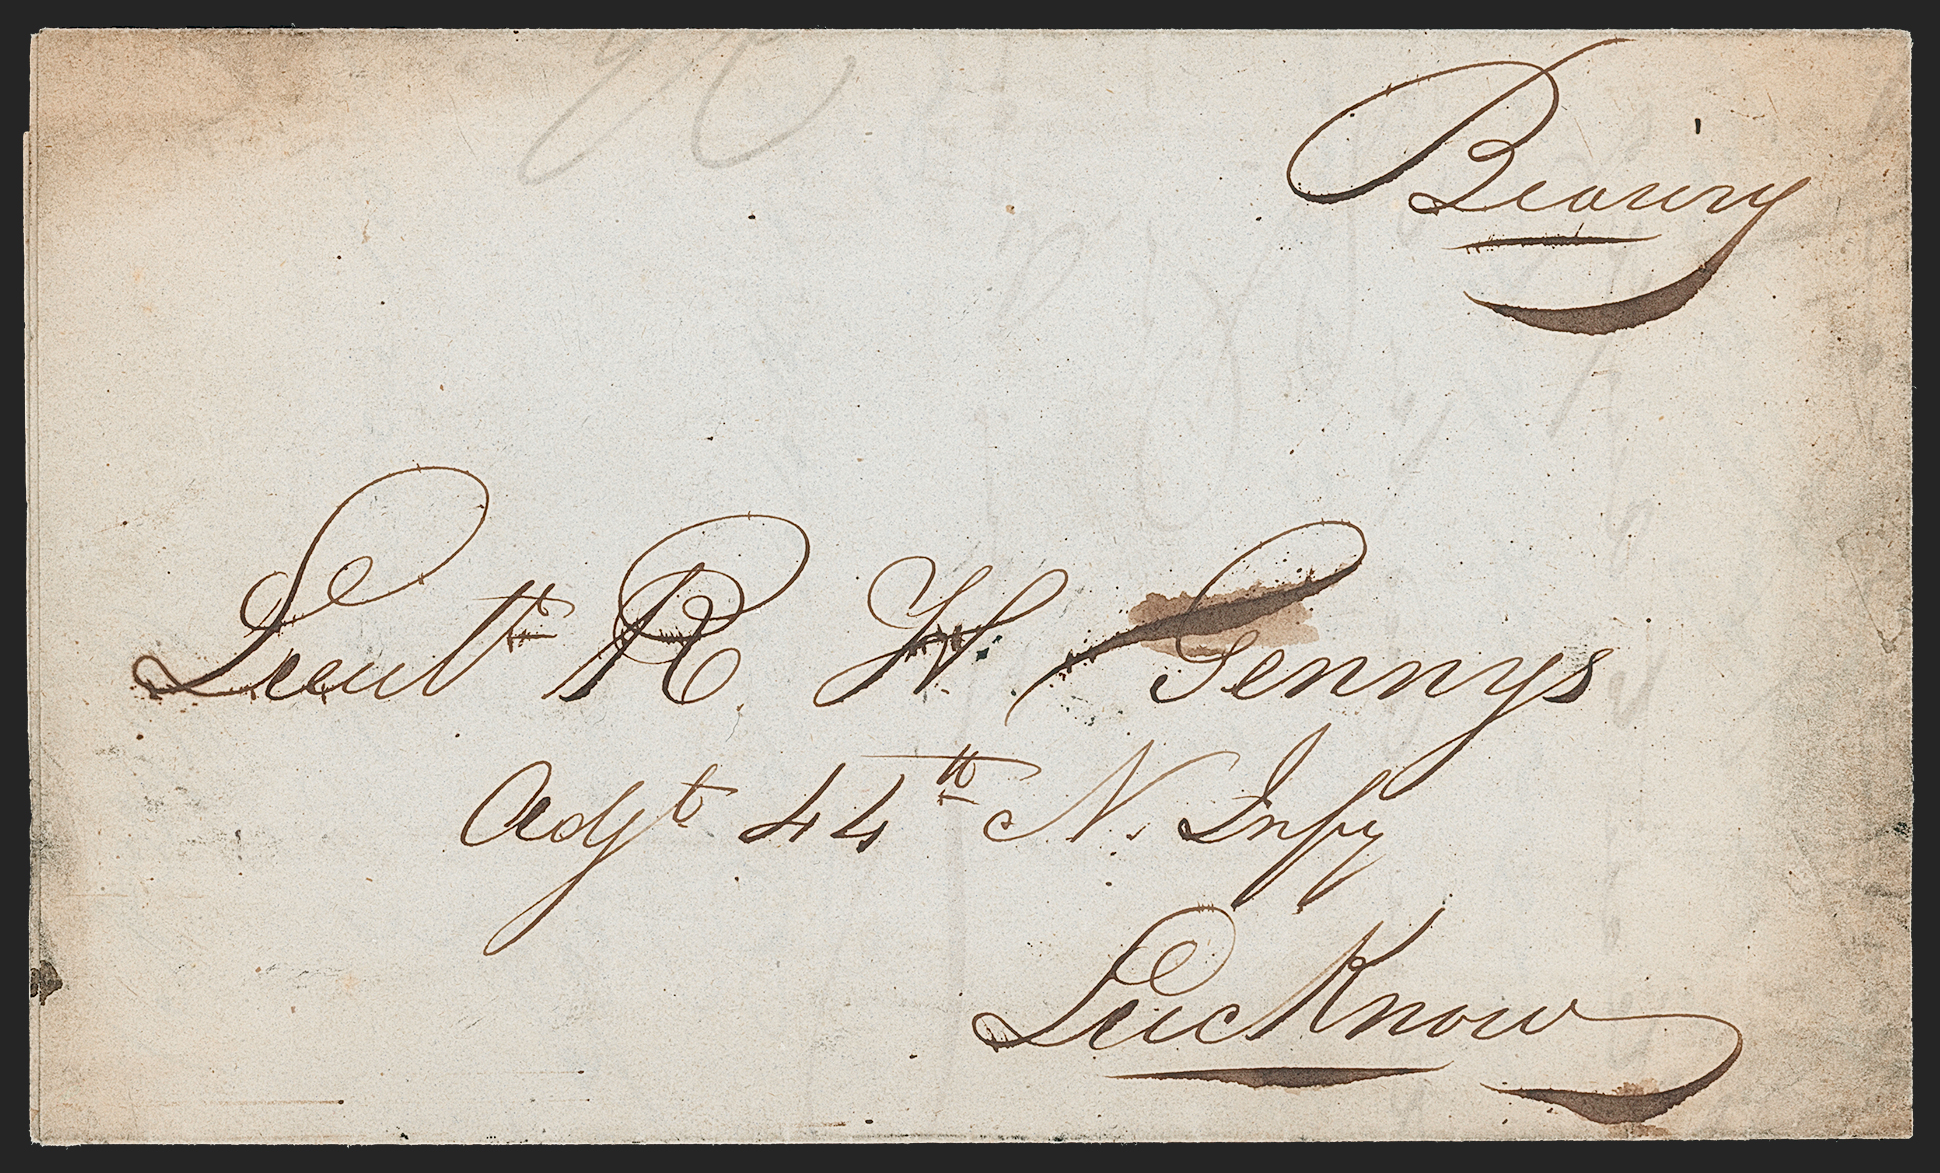 Bearing
Lieutt. R. W. Gennys
Adjt 44th N. Infy
Lucknow